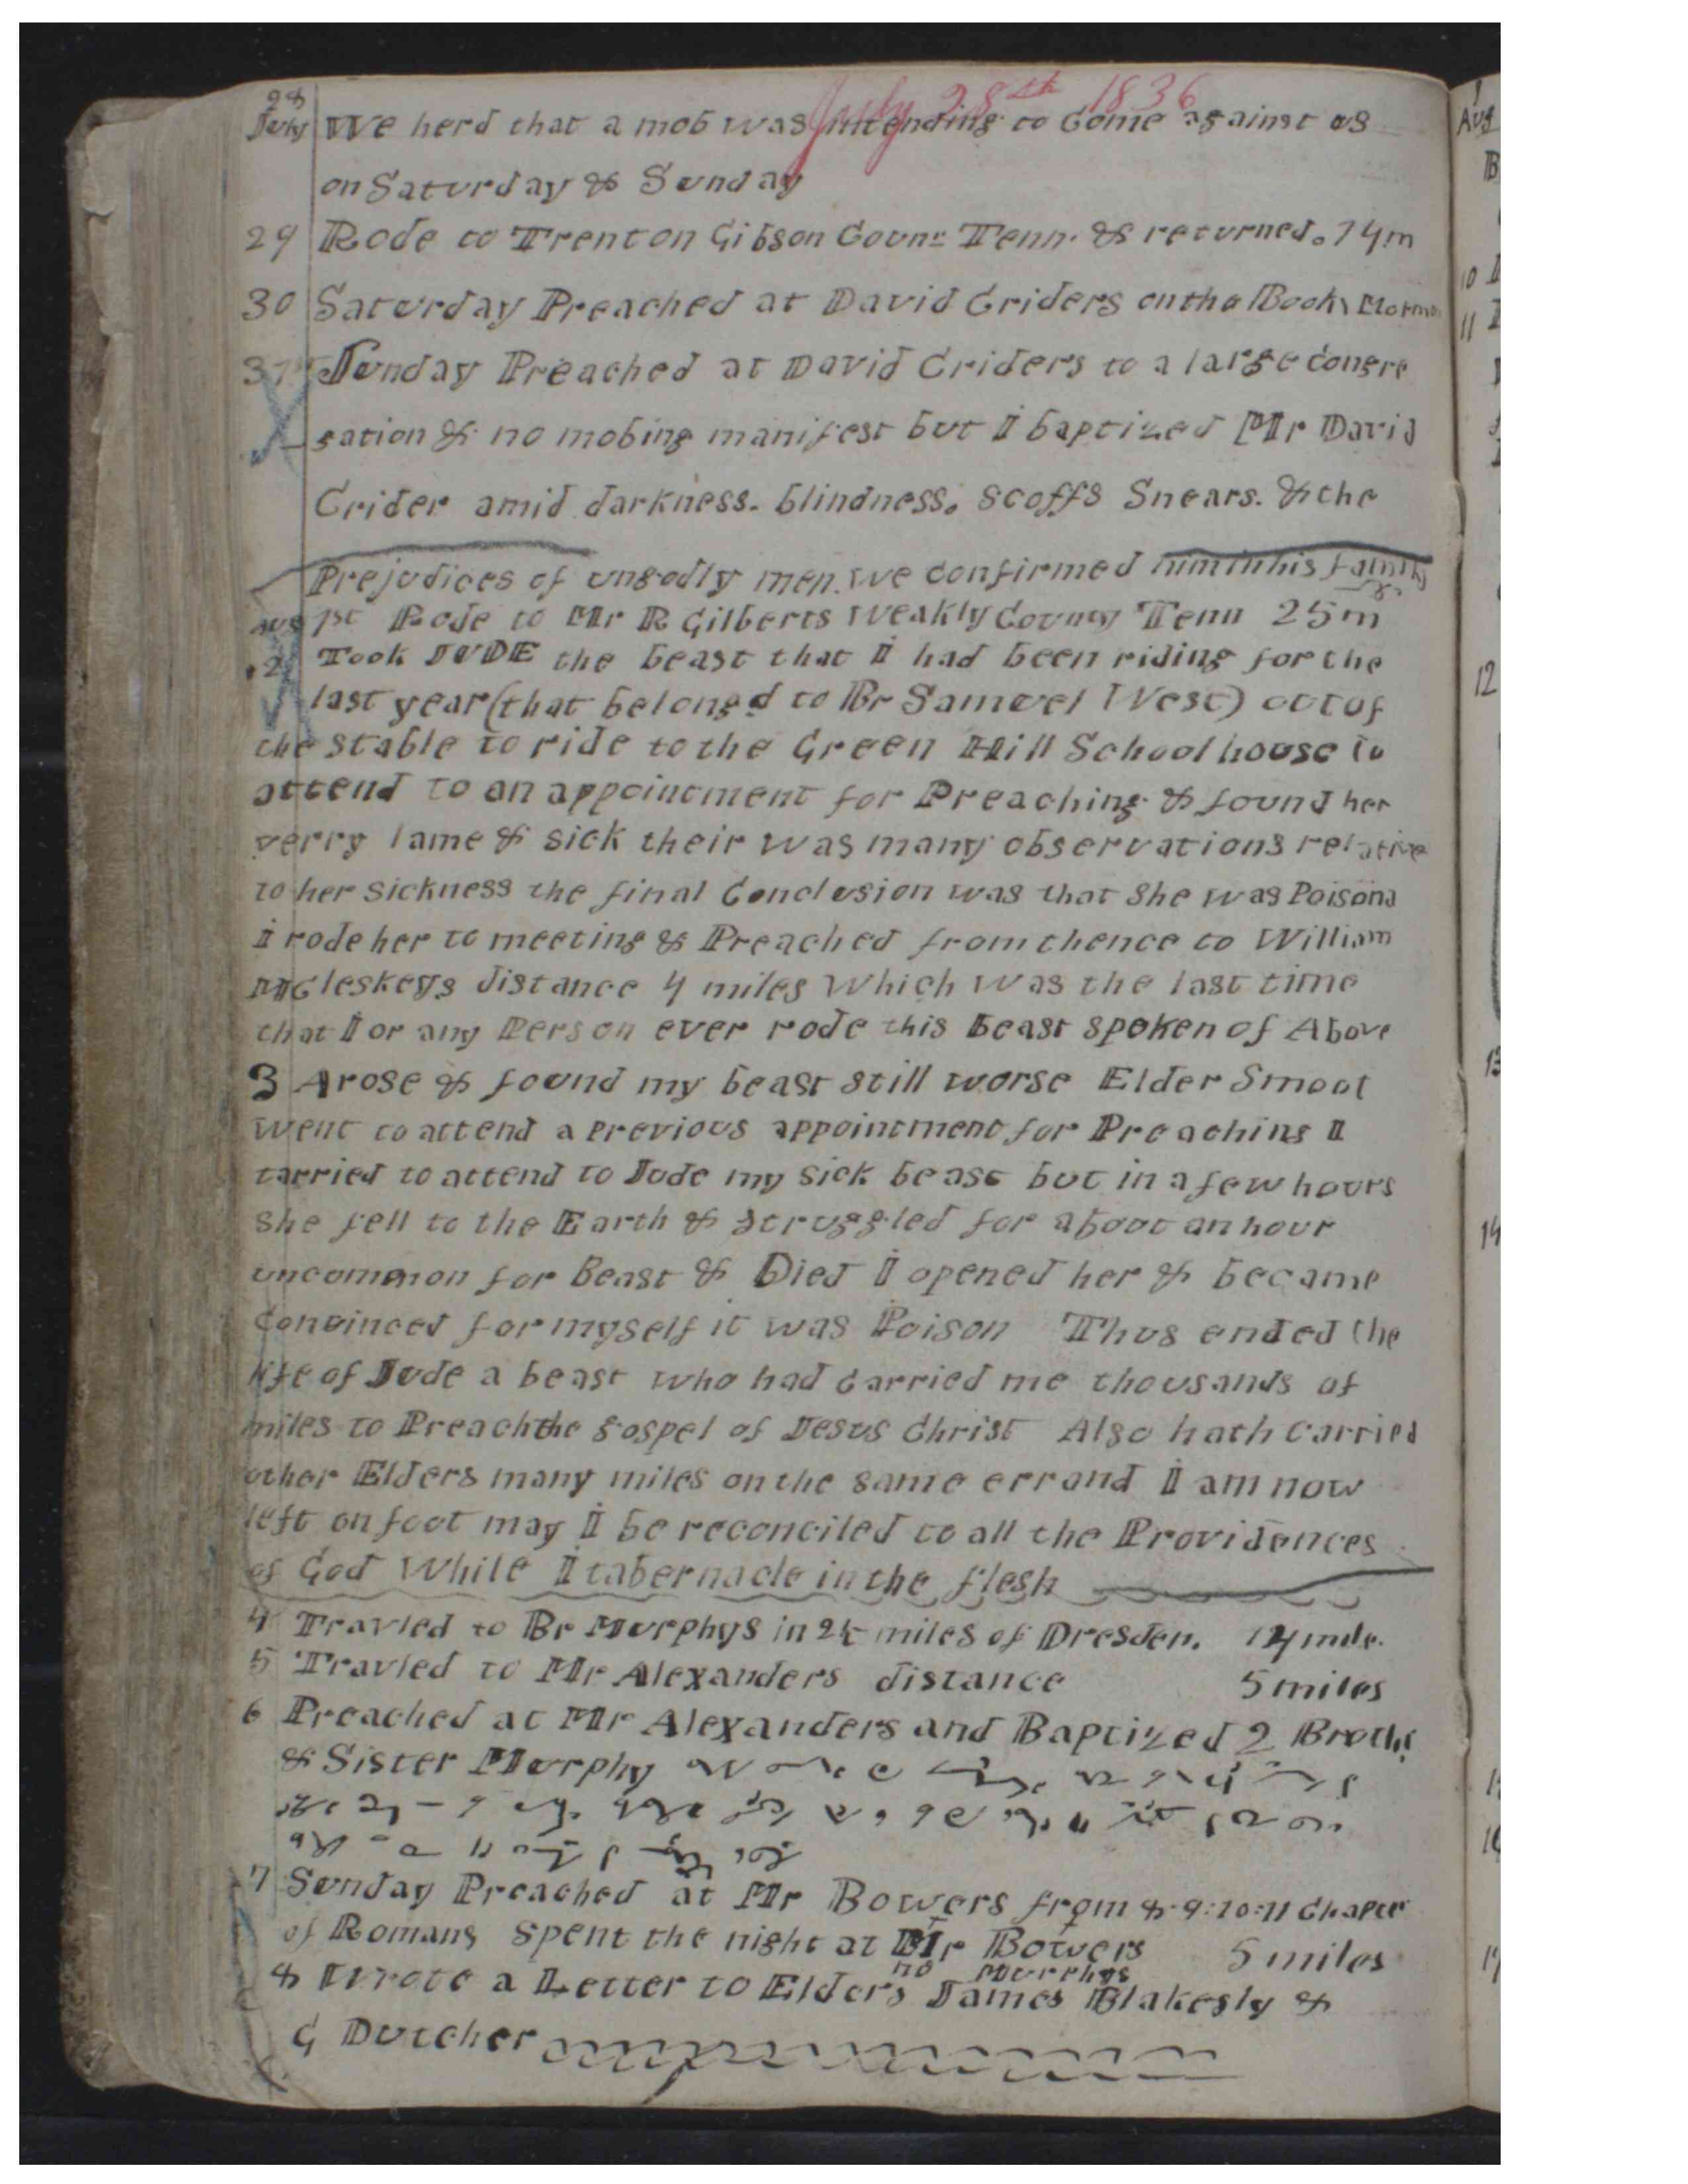 July 28th 1836
28
July We herd that a mob was intending to Come against us
on Saturday & Sunday
29 Rode to Trenton Gibson Coun= Tenn. & returned. 14m
30 Saturday Preached at David Criders on tha Book Mormon
31 Sunday Preached at David Criders to a large congre
gation & no mobing manifest but I baptized Mr David
Crider amid darkness. blindness. scoffs Snears. & the
Prejudices of ungodly men. we confirmed him in his family
Aug 1st Rode to Mr R Gilberts Weakly County Tenn 25m
2 Took JUDE the beast that I had been riding for the
last year (that belonged to Br Samuel West) out of
the stable to ride to the Green Hill School house to
attend to an appointment for Preaching & found her
verry lame & sick their was many observations relative
to her sickness the final Conclusion was that she was Poisond
I rode her to meeting & Preached from thence to William
McCleskeys distance 4 miles Which was the last time
that I or any Person ever rode this beast spoken of Above
3 Arose & found my beast still worse Elder Smoot
went to attend a Previous appointment for Preaching I
tarried to attend to Jude my sick beast but in a few hours
she fell to the Earth & struggled for about an hour
uncommon for Beast & Died I opened her & became
Convinced for myself it was Poison Thus ended the
life of Jude a beast who had Carried me thousands of
miles to Preach the gospel of Jesus Christ Also hath Carried
other Elders many miles on the same errand I am now
left on foot may I be reconciled to all the Providences
of God While I tabernacle in the flesh
4 Travled to Br Murphys in 2½ miles of Dresden. 14 mile.
5 Travled to Mr Alexanders distance 5 miles
6 Preached at Mr Alexanders and Baptized 2 Brothr
& Sister Murphy
7 Sunday Preached at Mr Bowers from 8.9:10:11 Chapter
of Romans Spent the night at Mr Bowers 5 miles
no Murphys
8 Wrote a Letter to Elders James Blakesly &
G Dutcher
Aug
10
11
12
13
14